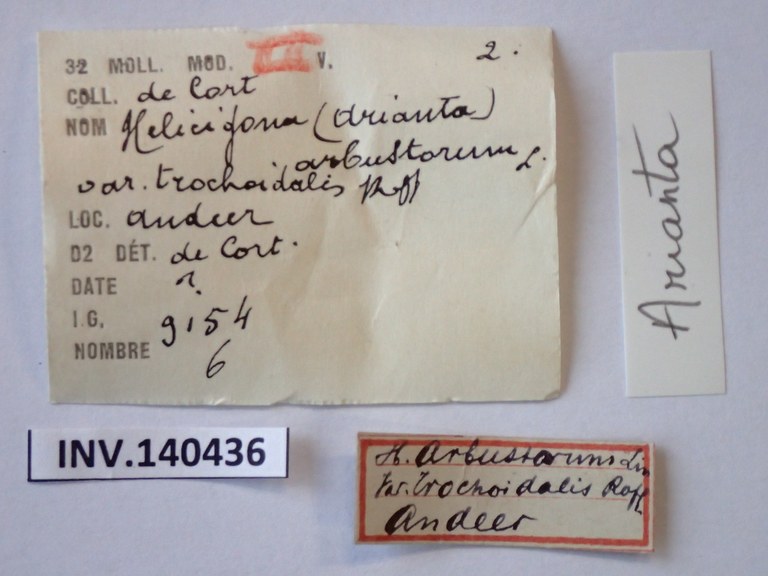 2.
32 MOLL. MOD. V.
COLL. de Cort
NOM Helicigona (Arianta)
arbustorum L.
var. trochoidalis Roff
LOC. Andeer
D2 DÉT. de Cort.
DATE ?
I.G. 9154
NOMBRE 6
Arianta
INV.140436
H. Arbustorum Lin
Var. Trochoidalis Roff
Andeer